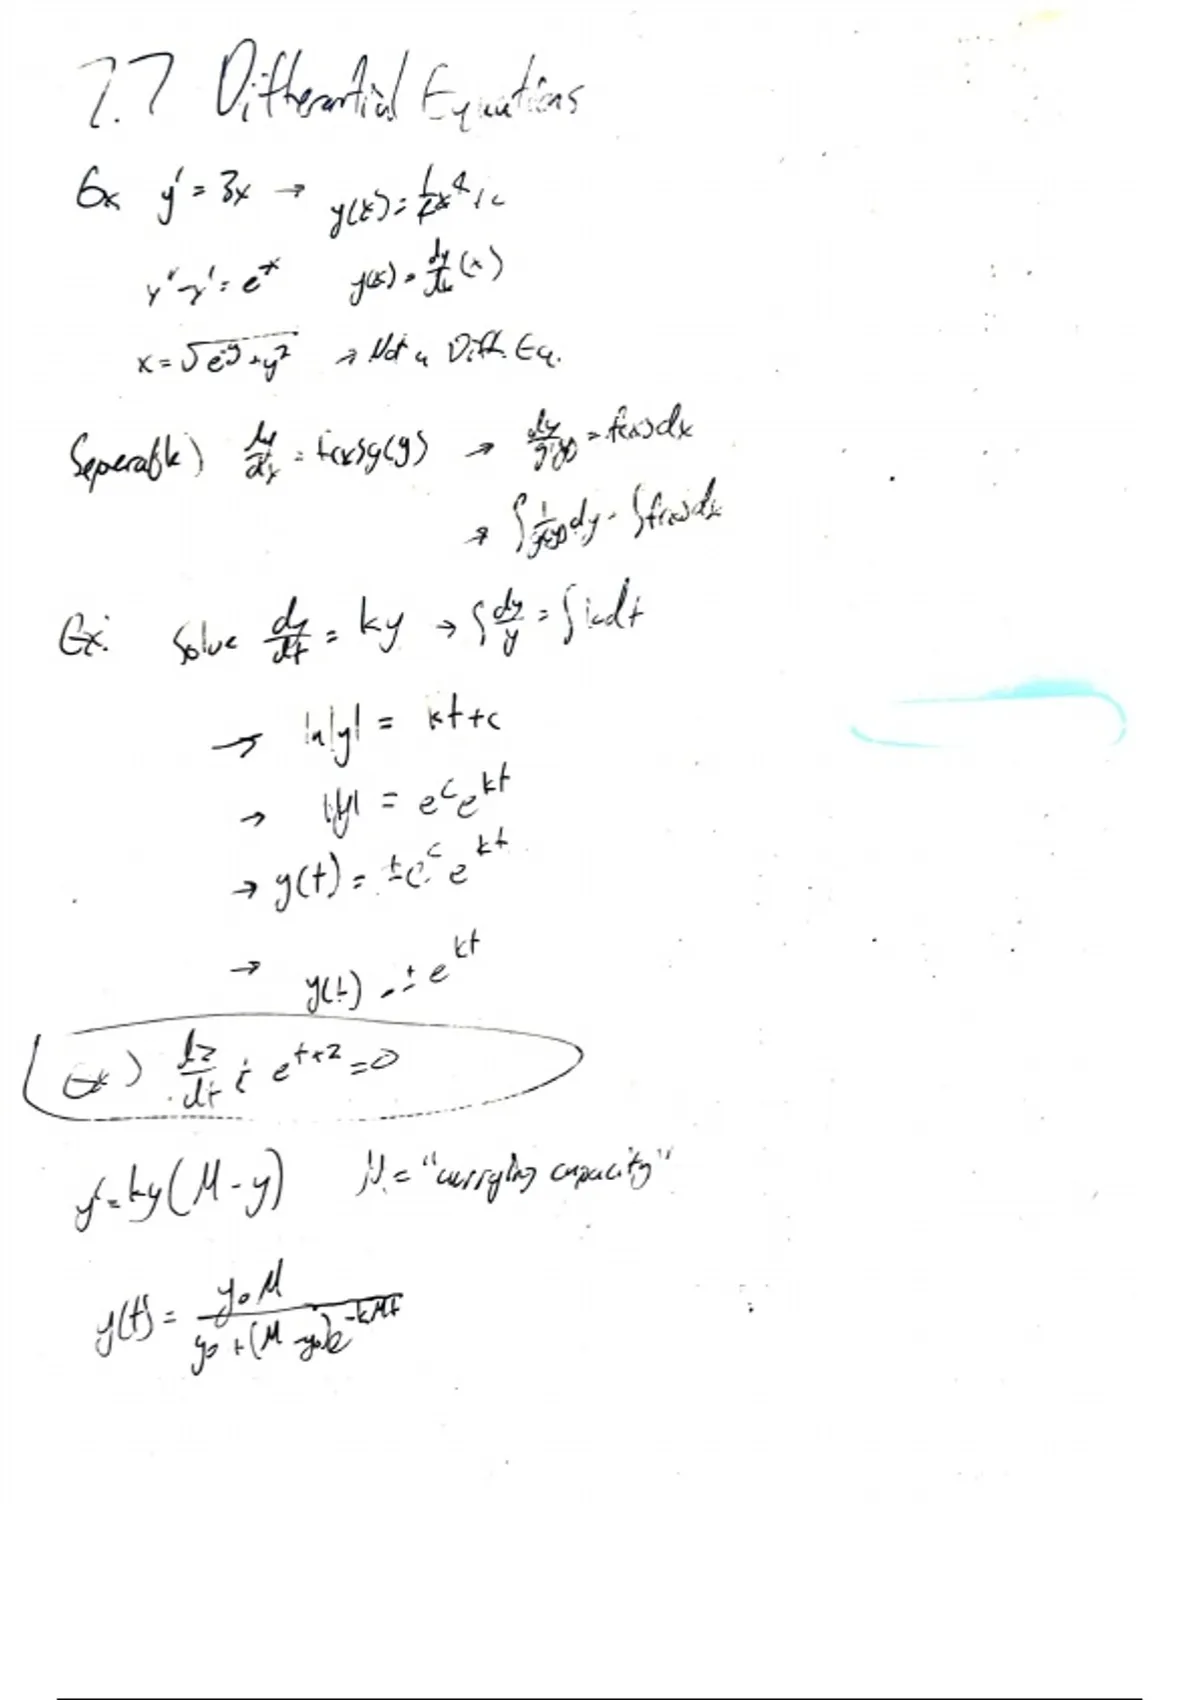 7.7 Differential Equations
Ex y' = 3x → y(x) = 1/4 x^4 + c
y'' - y' = e^x y(x) = dy/dx (x)
x = √(e^-y + y^2) → Not a Diff. Eq.
Seperable) dy/dx = f(x)g(y) → dy/g(y) = f(x)dx
→ ∫ 1/g(y) dy = ∫ f(x)dx
Ex: Solve dy/dt = ky → ∫ dy/y = ∫ k dt
→ ln|y| = kt+c
→ |y| = e^c e^kt
→ y(t) = ±e^c e^kt
→ y(t) = ± e^kt
Ex) dz/dt + e^t+z = 0
y' = ky(M - y) M = "carrying capacity"
y(t) = y₀M / y₀ + (M - y₀)e^-kMt